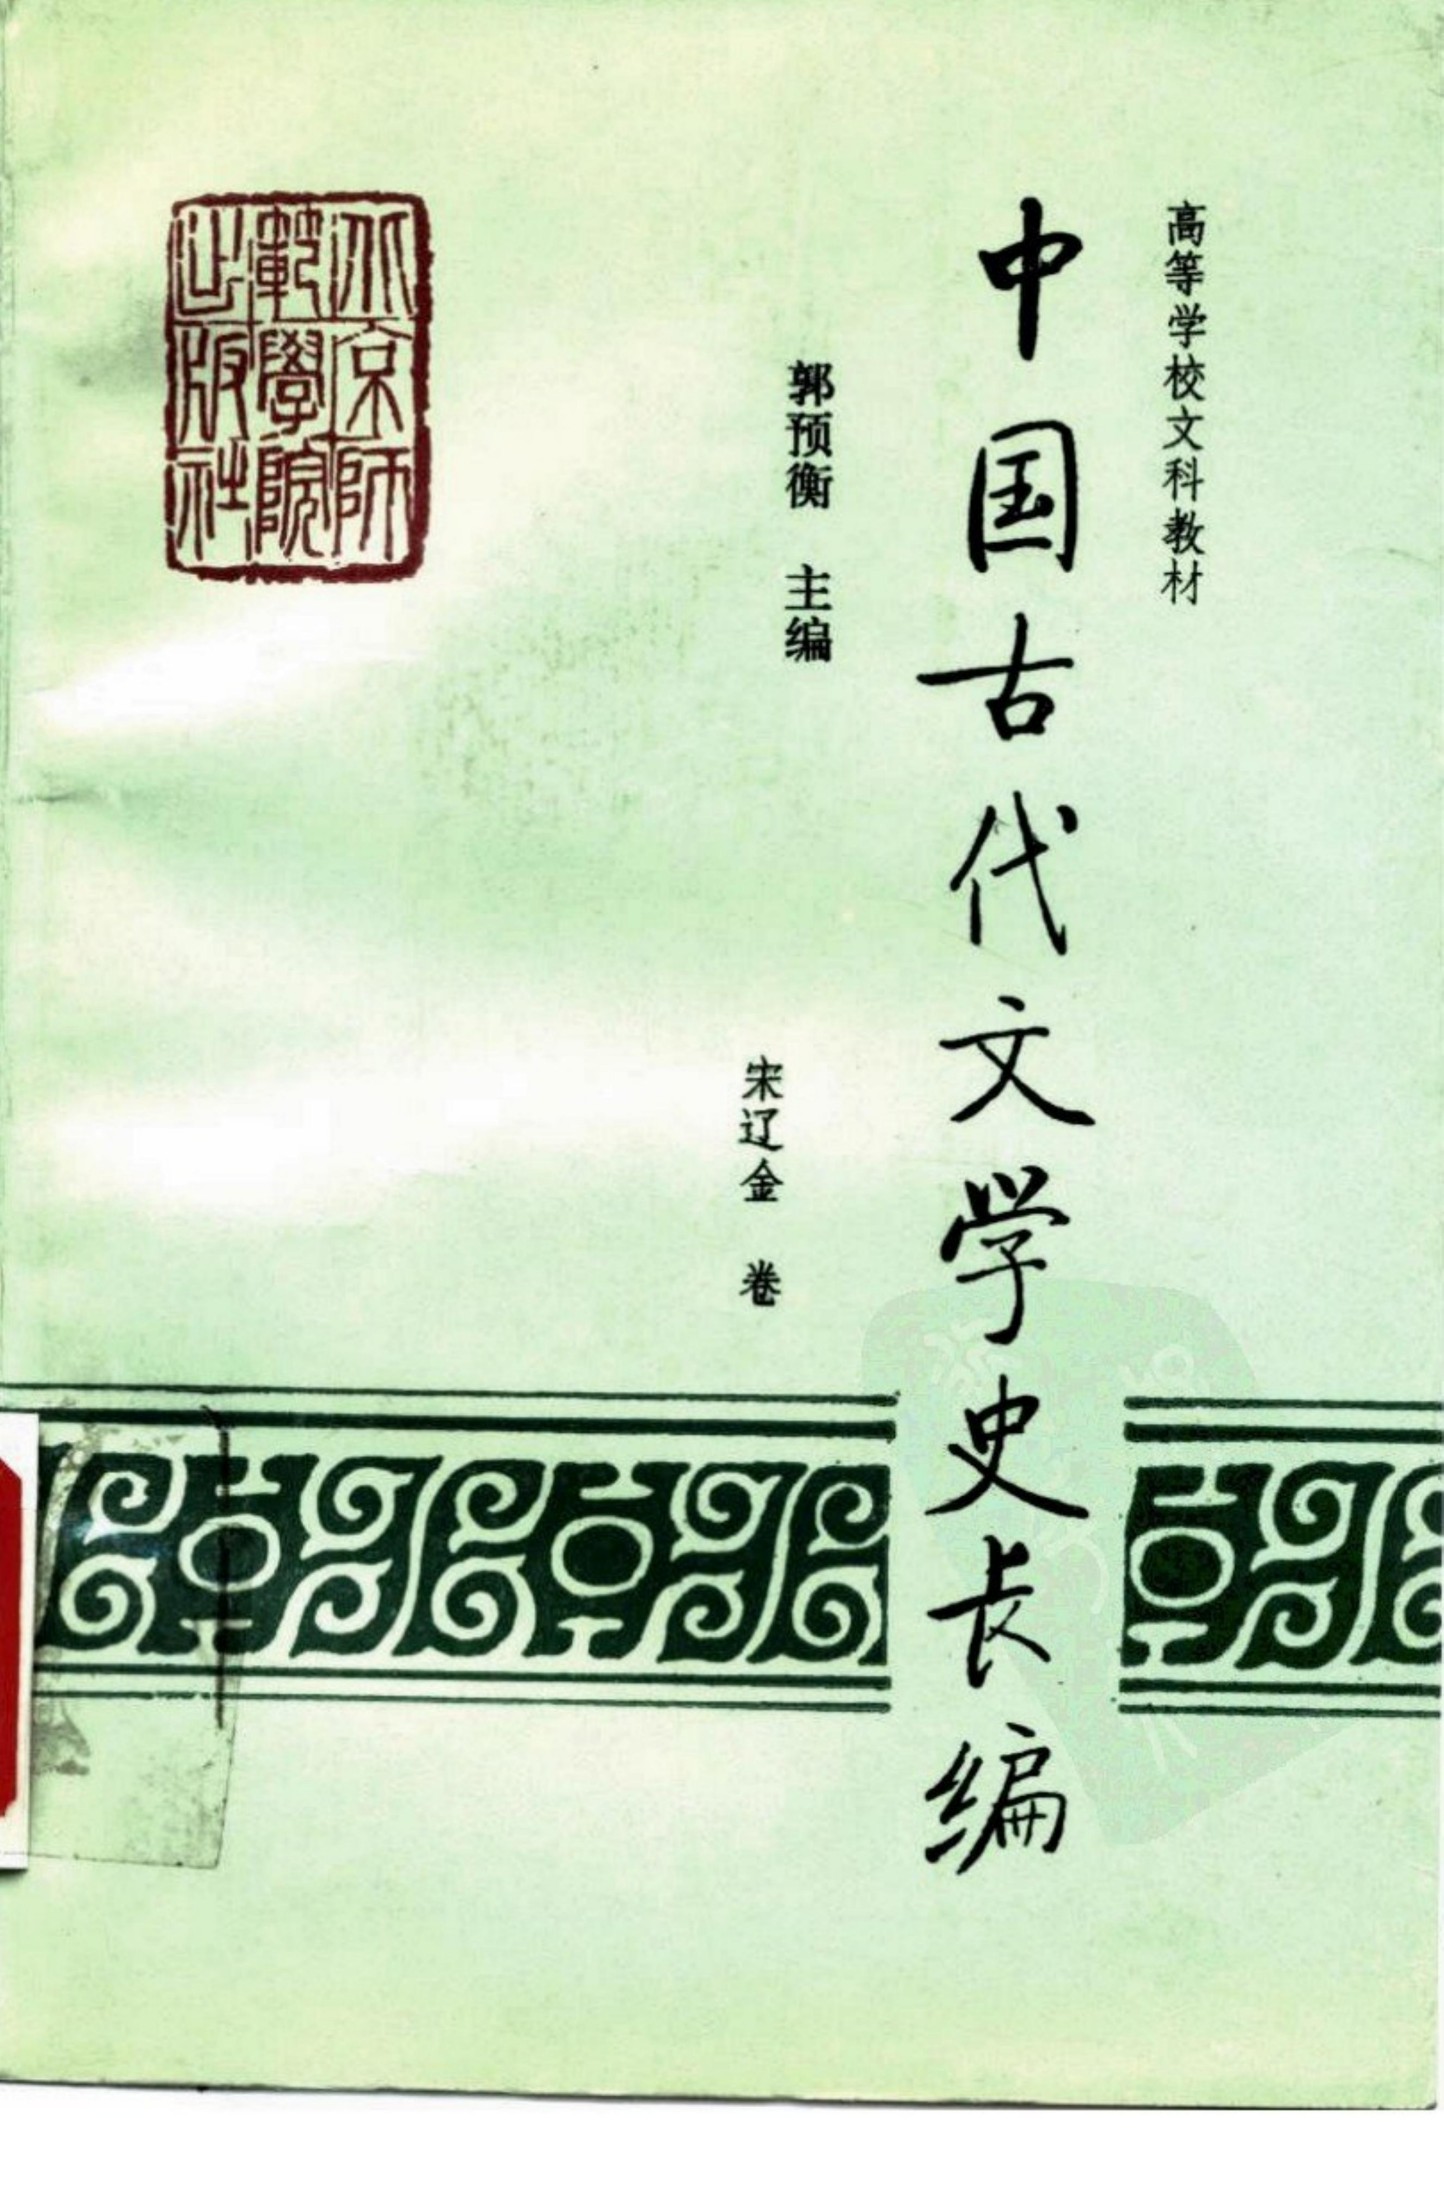 高等学校文科教材
中国古代文学史长编
郭预衡 主编
宋辽金 卷
北京師
範學院
出版社